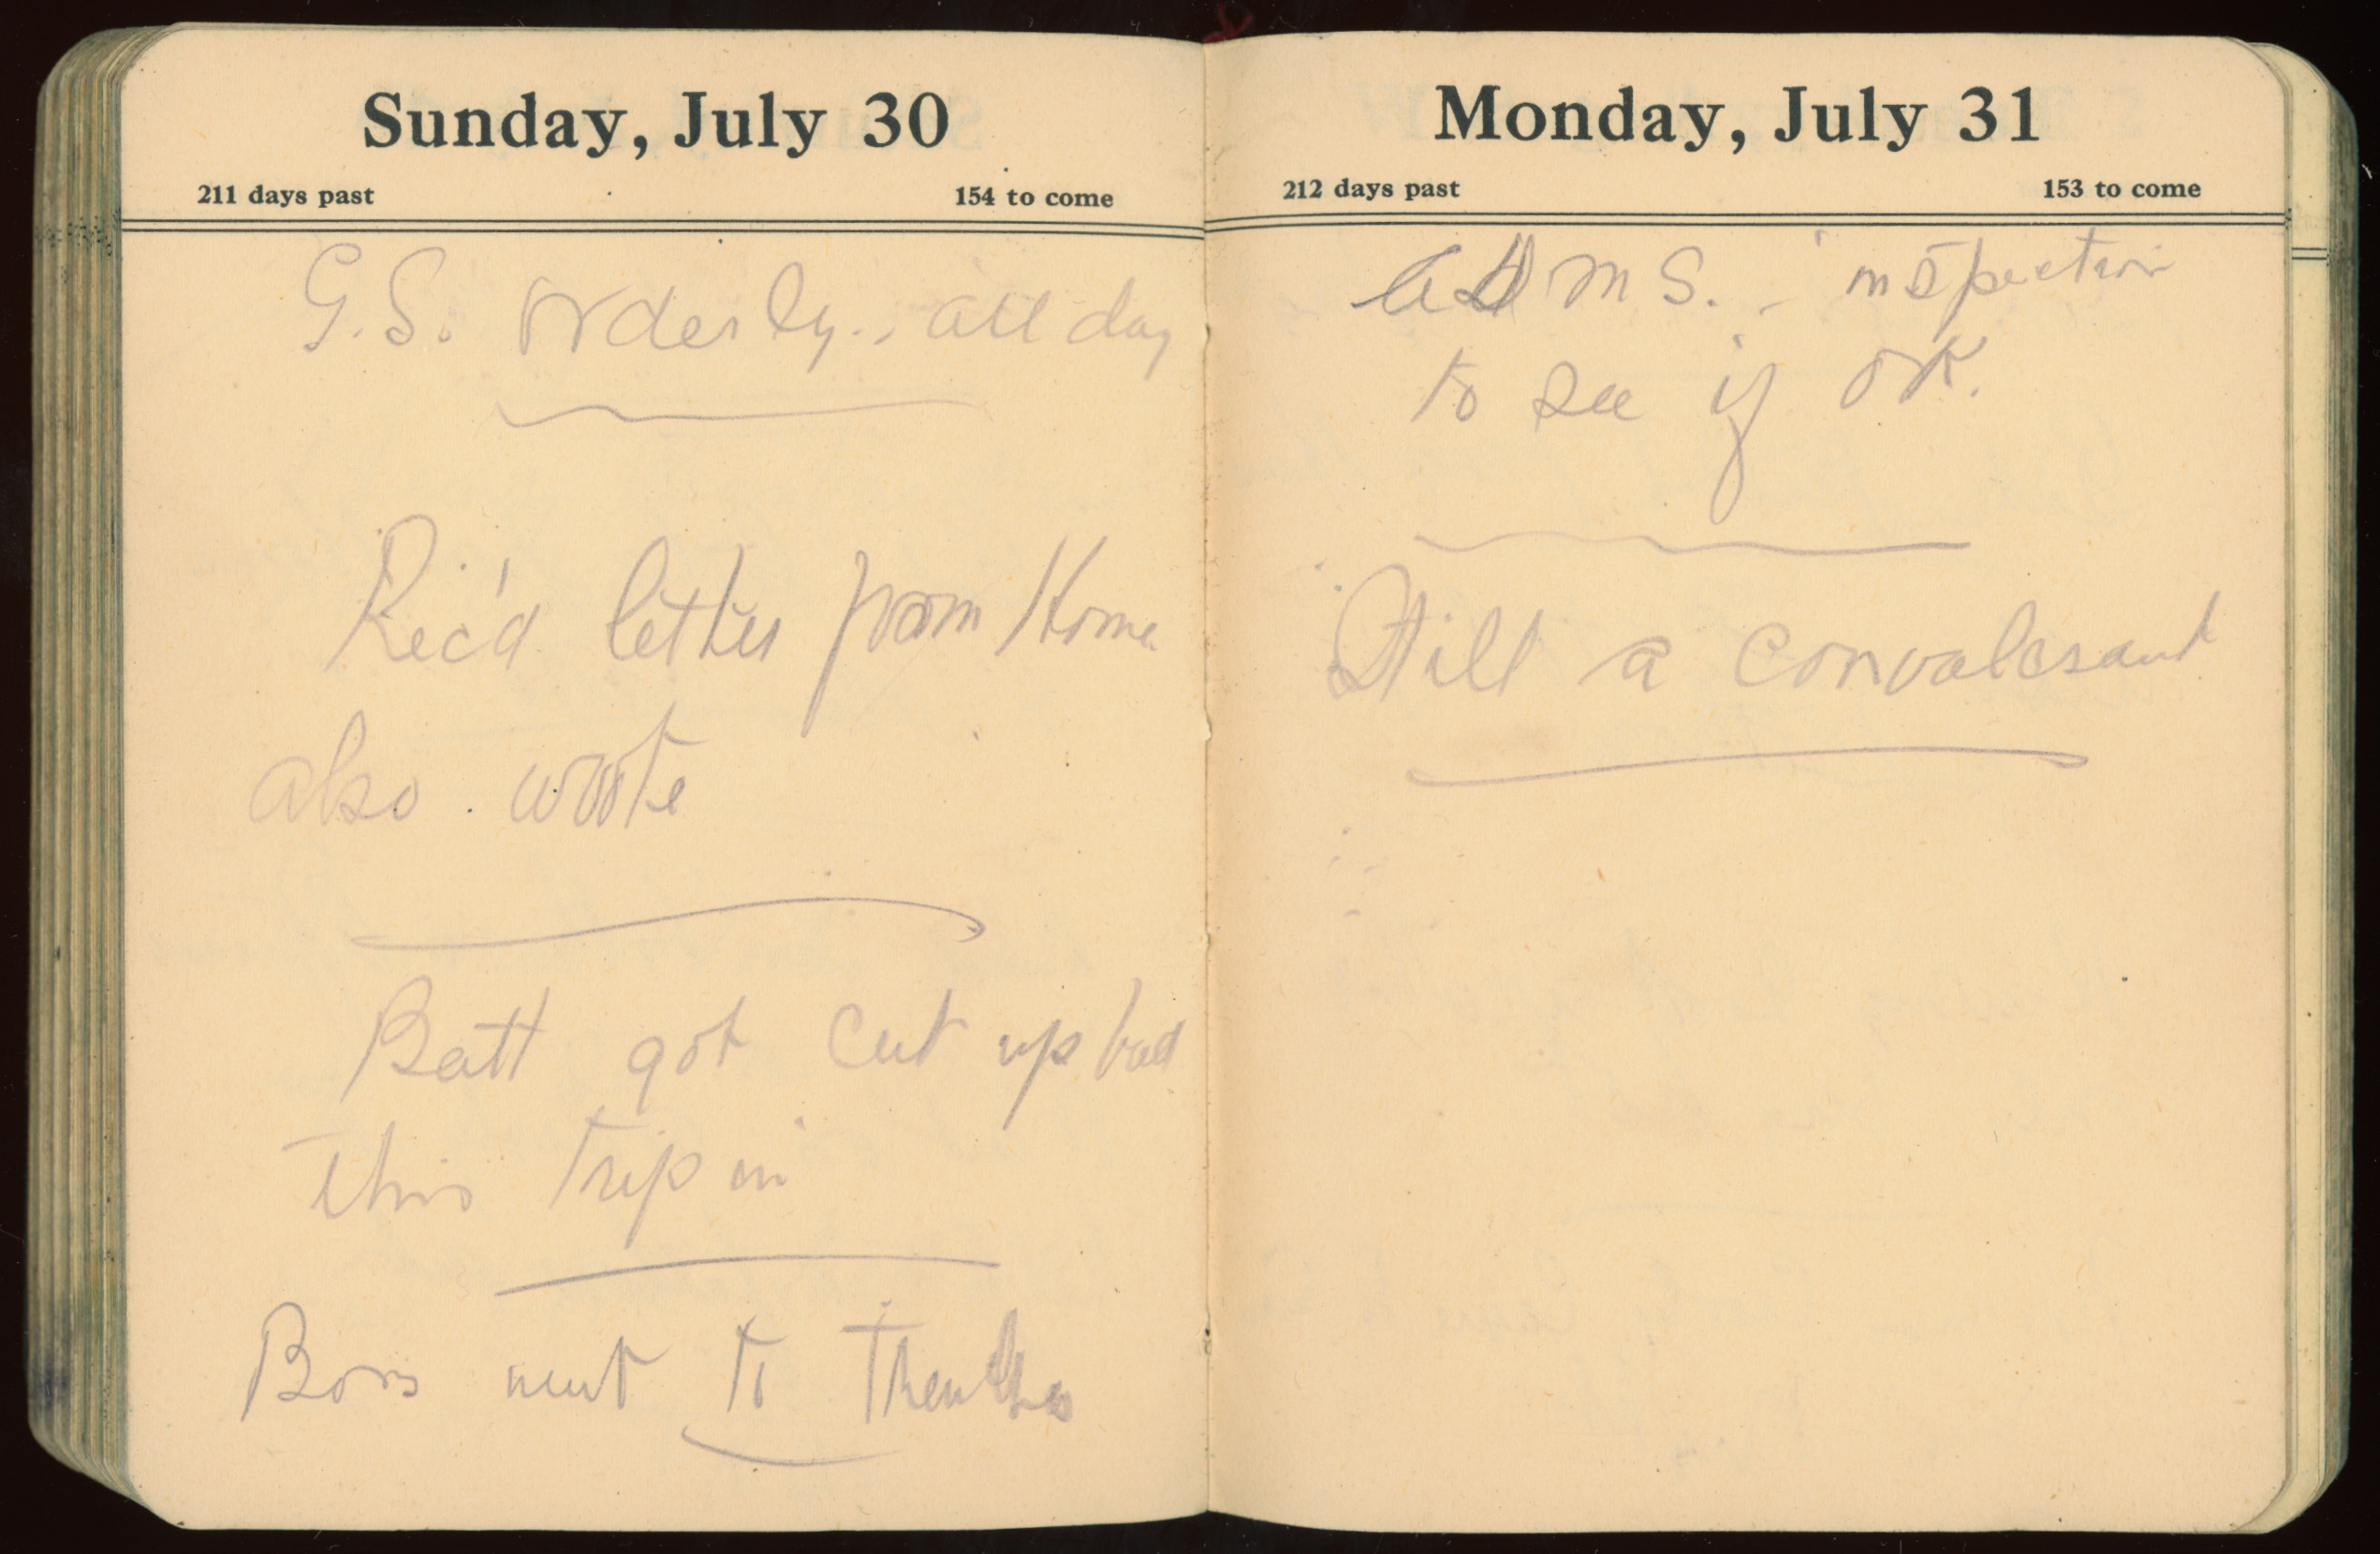 Sunday, July 30
211 days past 154 to come
G.S. Orderly., all day
Rec'd letter from Home
also wrote
Batt got cut up bad
this trip in
went to
Monday, July 31
212 days past 153 to come
ADMS. - inspection
to see if OK.
Still a convalesant